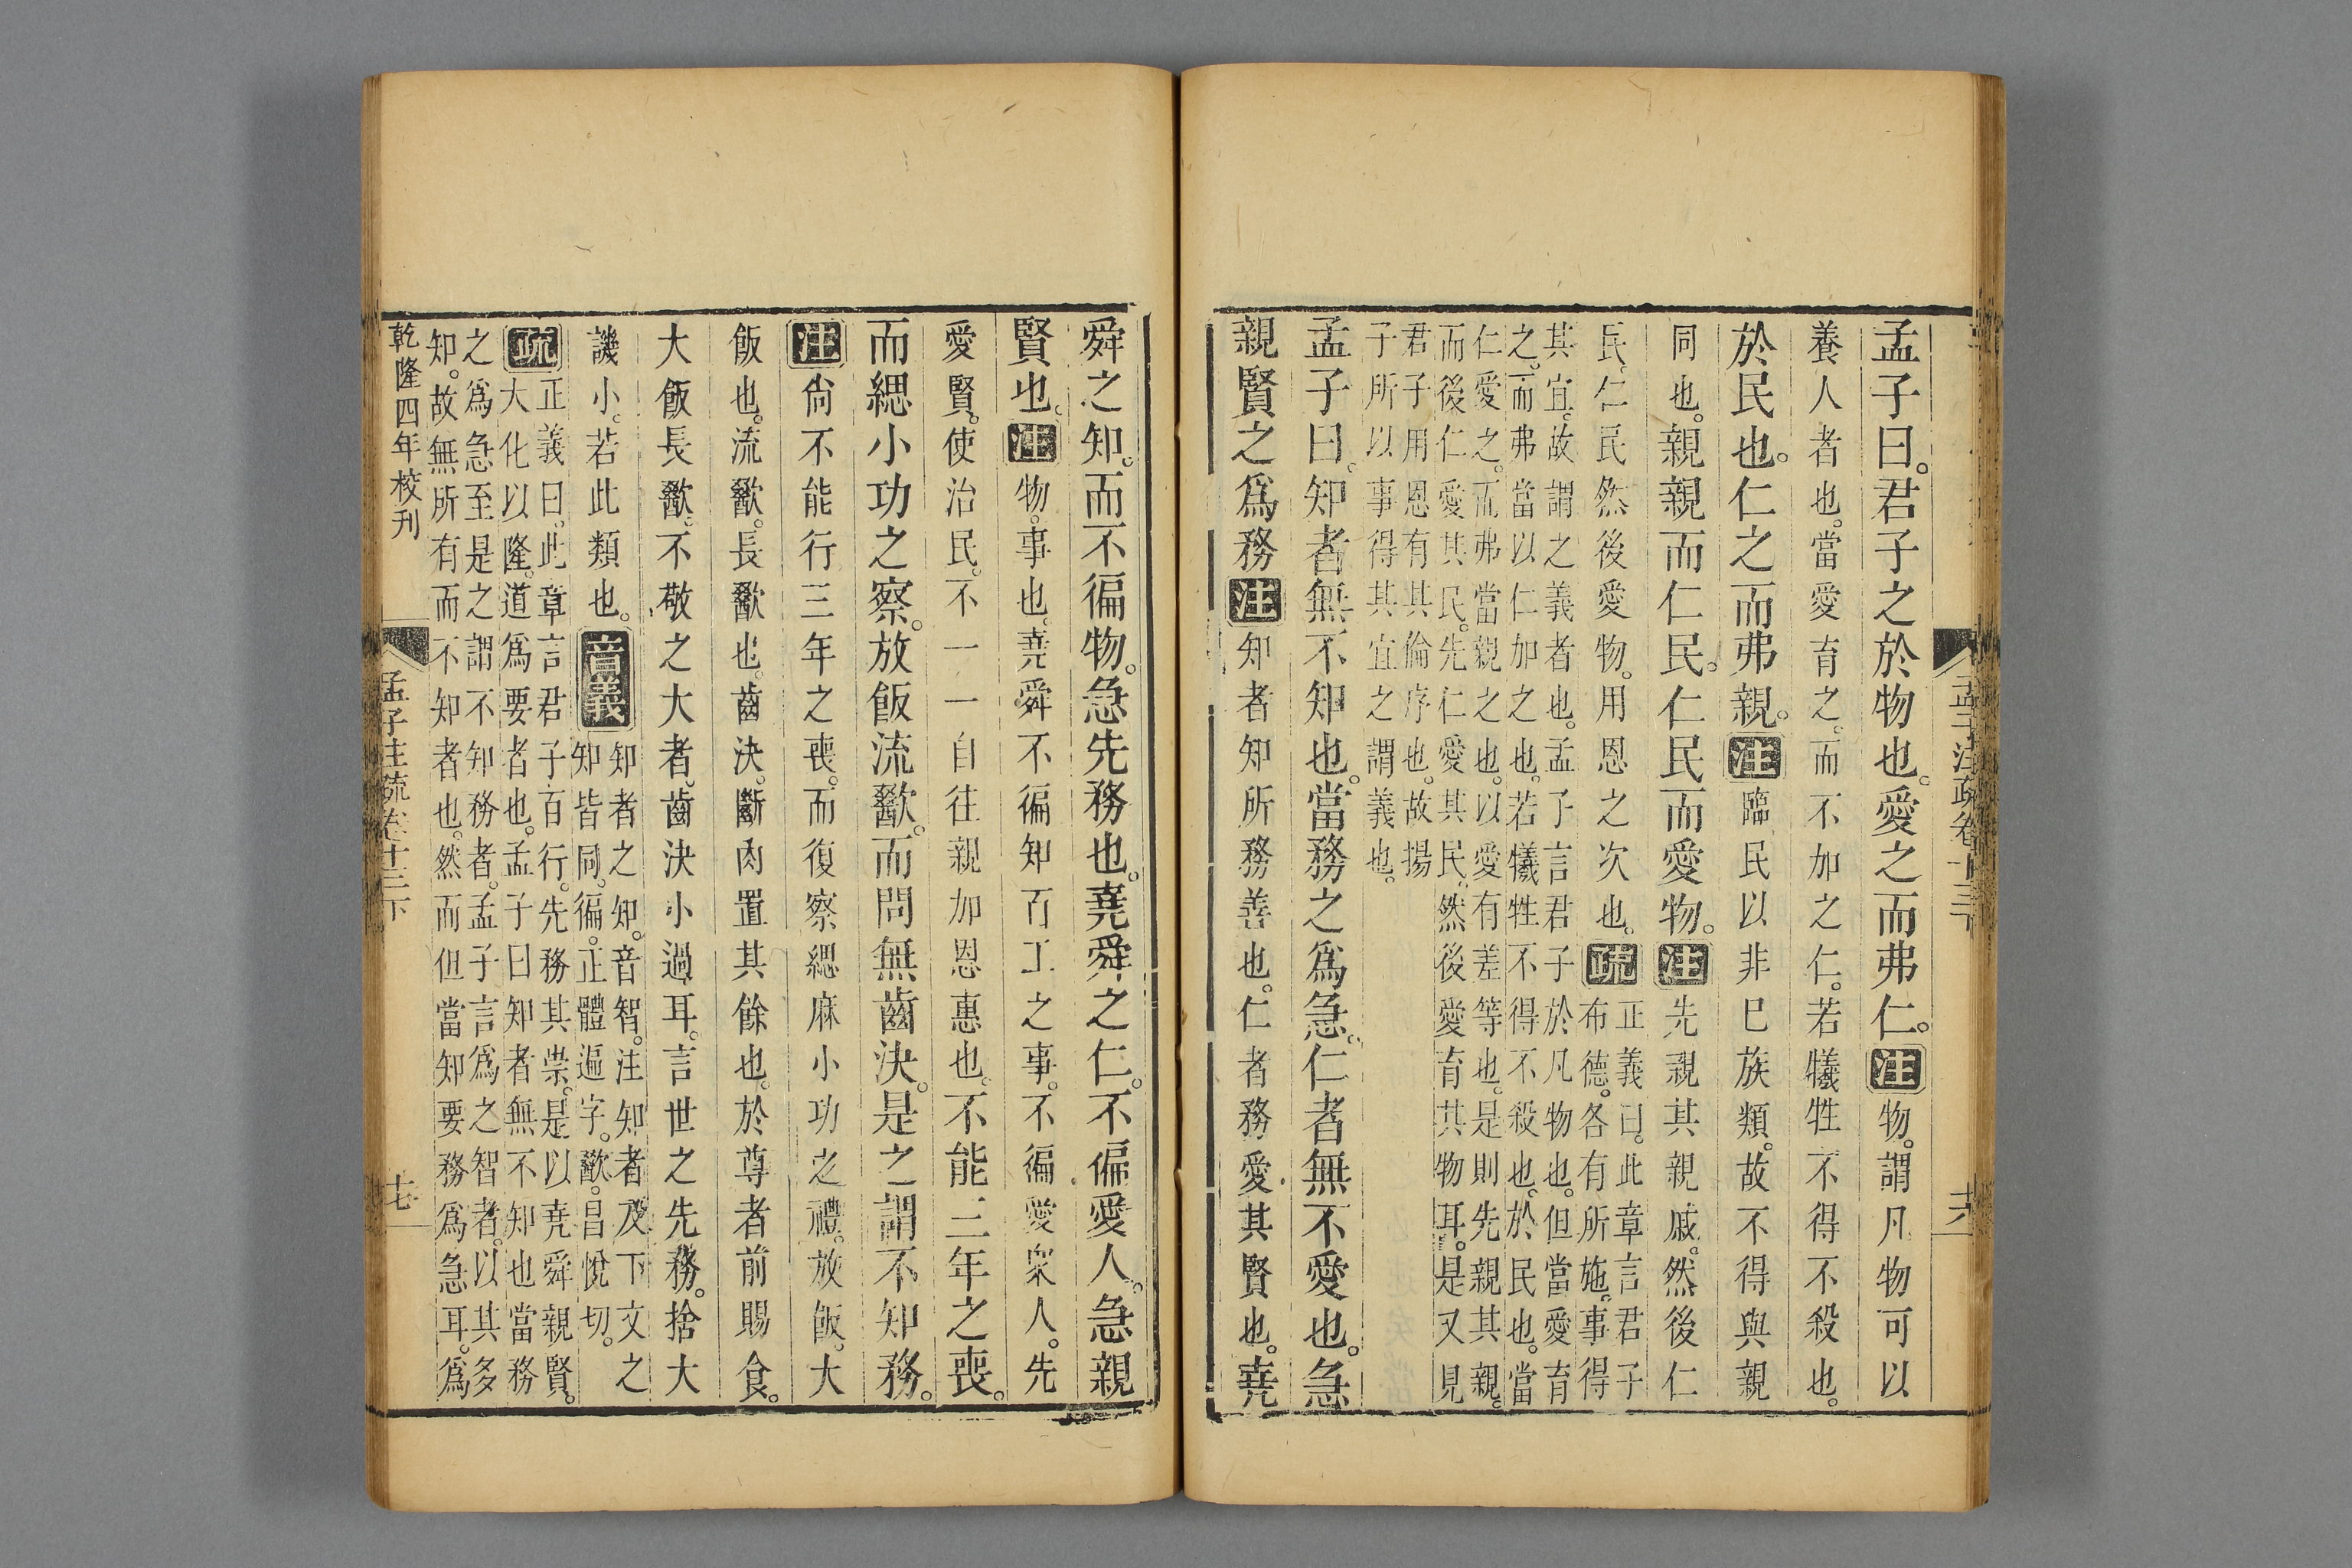 孟子注疏卷十三下
孟子曰。君子之於物也。愛之而弗仁。注物。謂凡物可以
養人者也。當愛育之。而不加之仁。若犧牲不得不殺也。
於民也。仁之而弗親。注臨民以非巳族類。故不得與親
同也。親親而仁民。仁民而愛物。注先親其親戚。然後仁
民。仁民然後愛物。用恩之次也。疏正義曰。此章言君子
布德。各有所施。事得
其宜。故謂之義者也。孟子言君子於凡物也。但當愛育
之。而弗當以仁加之也。若犧牲不得不殺也。於民也。當
仁愛之。而弗當親之也。以愛有差等也。是則先親其親。
而後仁愛其民。先仁愛其民。然後愛育其物耳。是又見
君子用恩有其倫序也。故揚
子所以事得其宜之謂義也。
孟子曰。知者無不知也。當務之爲急。仁者無不愛也。急
親賢之爲務注知者知所務善也。仁者務愛其賢也。堯
舜之知。而不徧物。急先務也。堯舜之仁。不偏愛人。急親
賢也。注物。事也。堯舜不徧知百工之事。不徧愛衆人。先
愛賢。使治民。不一一自往親加恩惠也。不能三年之喪。
而緦小功之察。放飯流歠。而問無齒決。是之謂不知務。
注尙不能行三年之喪。而復察緦麻小功之禮。放飯。大
飯也。流歠。長歠也。齒決。斷肉置其餘也。於尊者前賜食。
大飯長歠。不敬之大者。齒決小過耳。言世之先務。捨大
譏小。若此類也。音義知者之知。音智。注知者及下文之
知皆同。徧。正體遍字。歠。昌悅切。
疏正義曰。此章言君子百行。先務其崇。是以堯舜親賢。
大化以隆。道爲要者也。孟子曰知者無不知也當務
之爲急至是之謂不知務者。孟子言爲之智者。以其多
知。故無所有而不知者也。然而但當知要務爲急耳。爲
乾隆四年校刊
孟子注疏卷十三下
十七